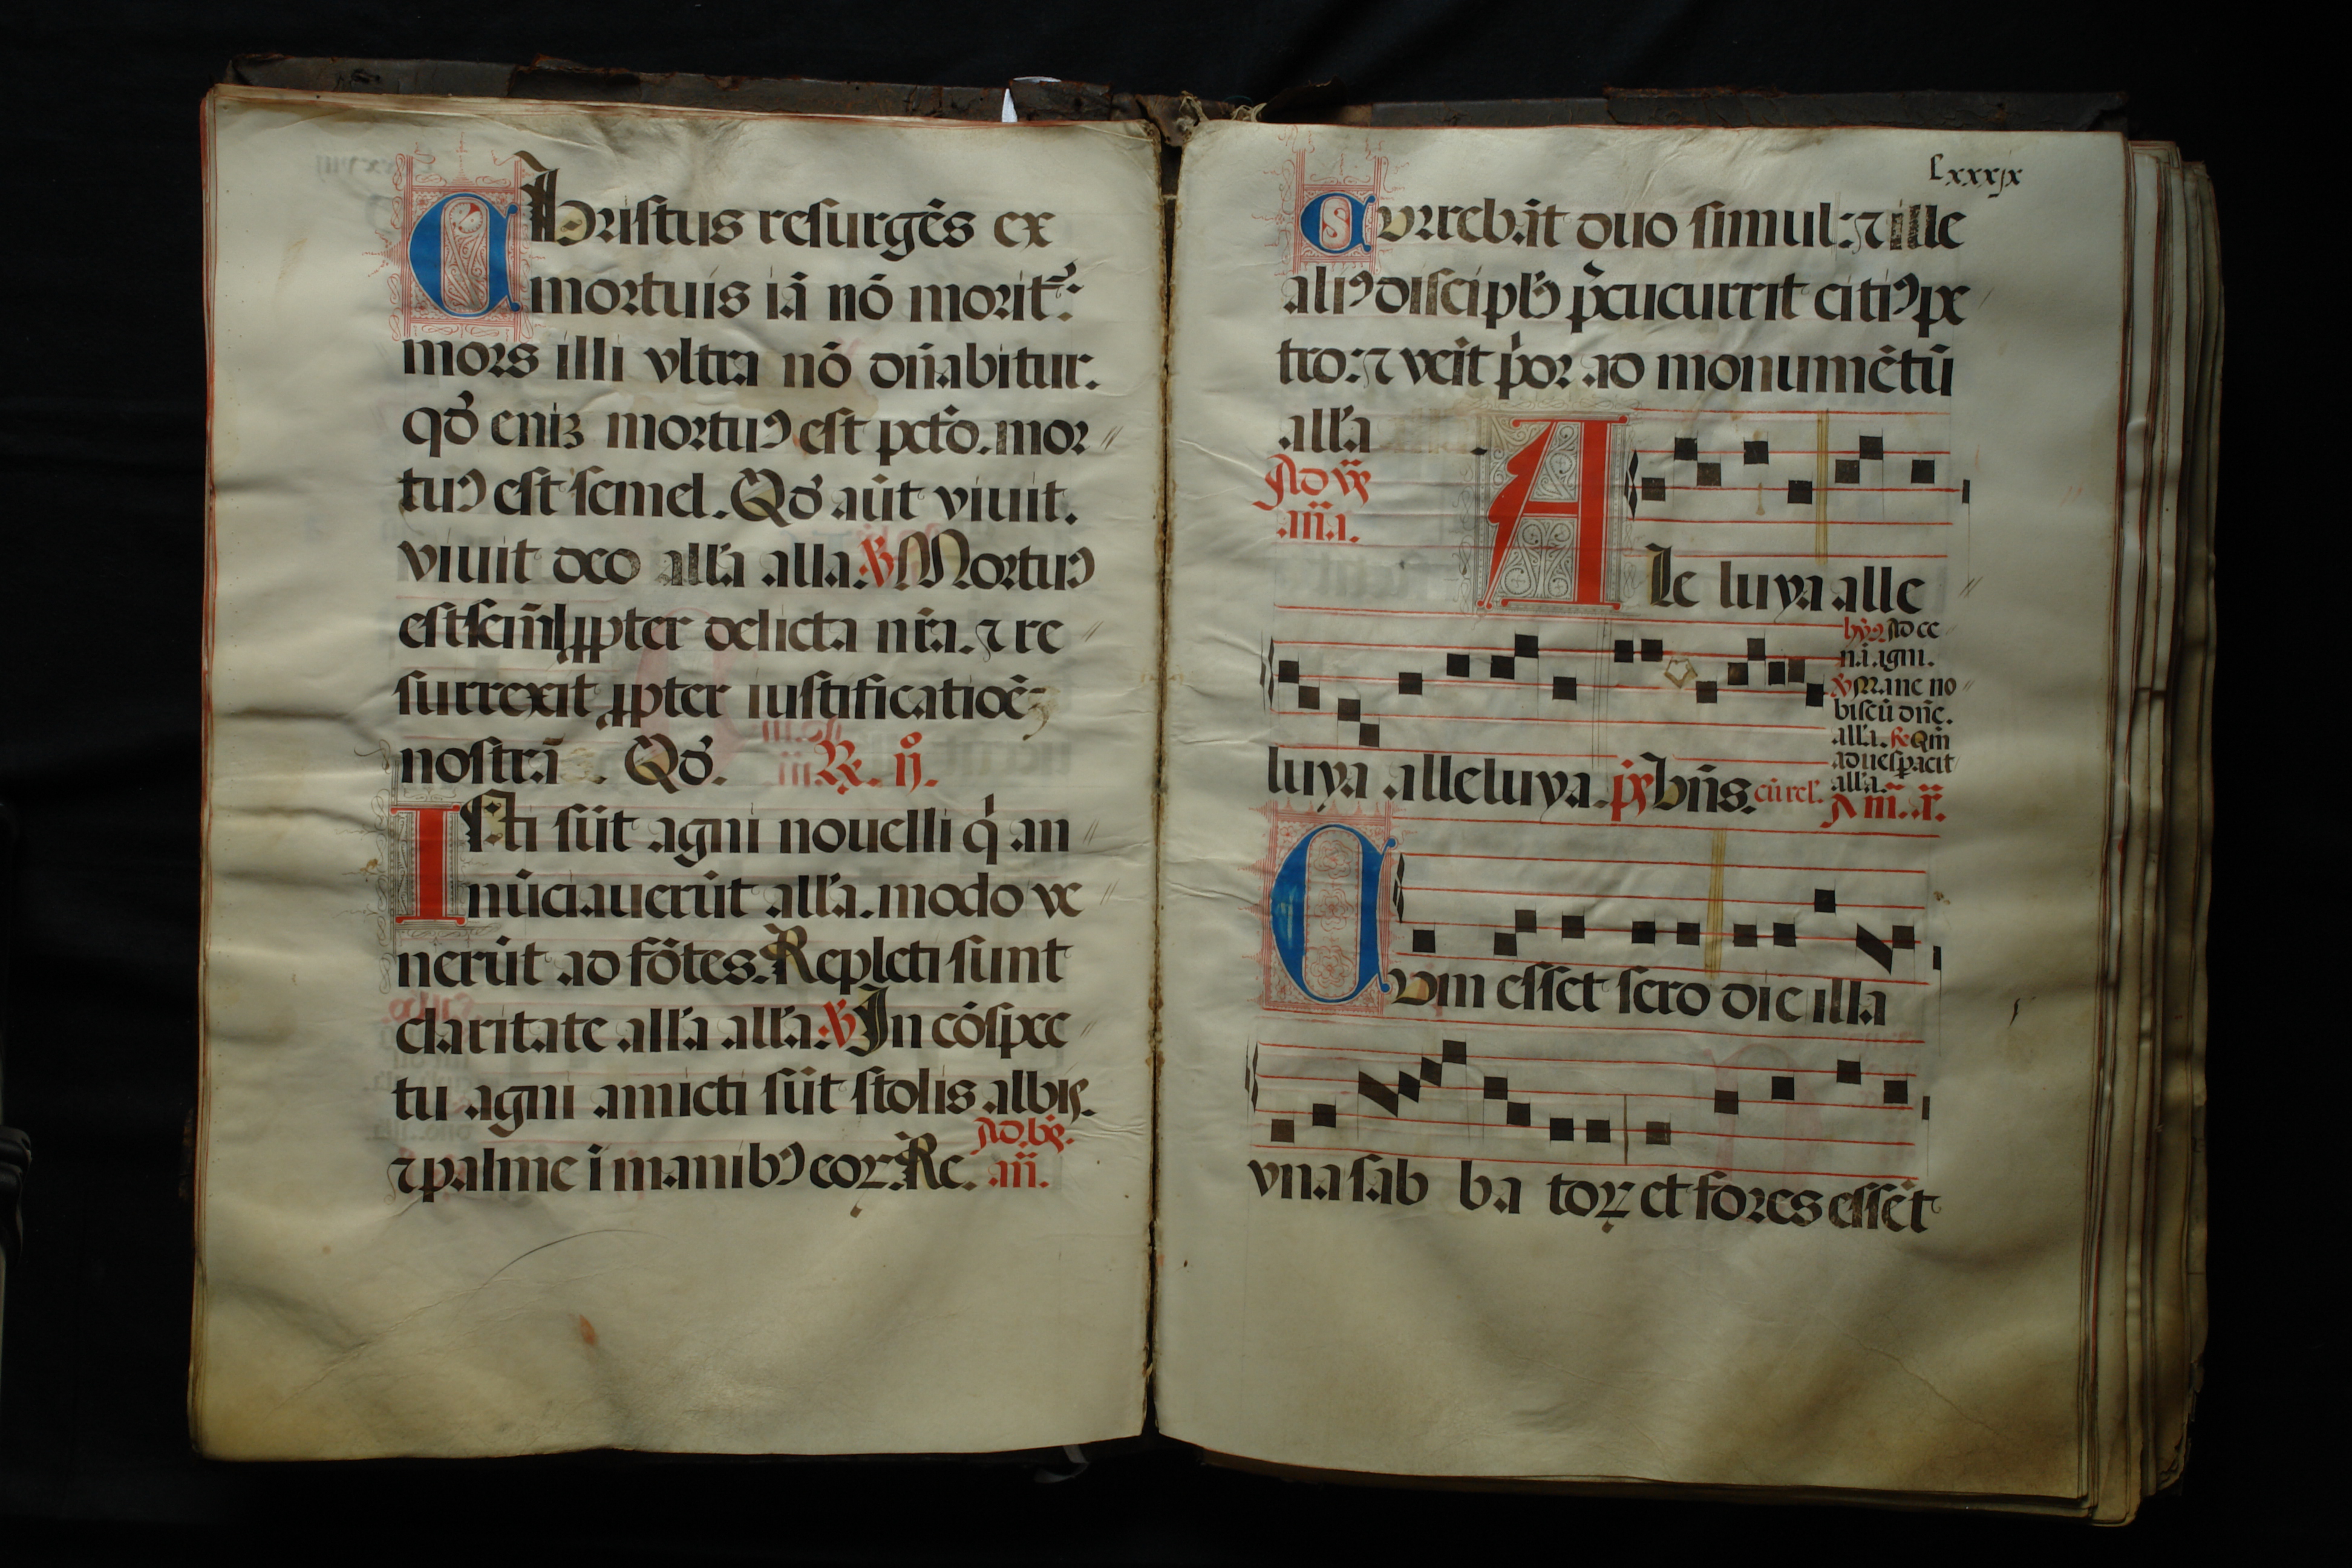 Christus resurgēs ex
mortuis iā nō moritᷣ:
mors illi vltra nō dn̄abitur.
qd̓ eniꝫ mortuꝰ est pctō. mor
tuꝰ est semel. Qd̓ aūt viuit.
viuit deo all̓a alla. ℣ Mortuꝰ
est semel ꝓpter delicta nr̄a. ⁊ re
surrexit ꝓpter iustificatioē
nostrā. Qd̓. ℞. ij.
Isti sūt agni nouelli q̇ an
nūciauerūt all̓a. modo ve
nerūt ad fōtes. Repleti sunt
claritate all̓a all̓a. ℣ In cōspec
tu agni amicti sūt stolis albis.
⁊ palme ī manibꝰ eoꝝ. Re. Ad. bn̄. an̄.
Lxxxix
Currebāt duo simul: ⁊ ille
aliꝰ discipl̓s p̄cucurrit citiꝰ pe
tro: ⁊ veīt p̓or ad monumētū
all̓a
Ad vꝶ
an̄a.
Ale luya alle
hỹꝰ Ad ce
nā agni.
℣ Mane no
biscū dn̄e.
all̓a. ℟ Qm̄
aduesꝑacit
all̓a.
luya alleluya. p̄s Bn̄s. cū rel̓. A m̄. an̄.
Cvm esset sero die illa
vna sab ba toꝝ et fores essēt